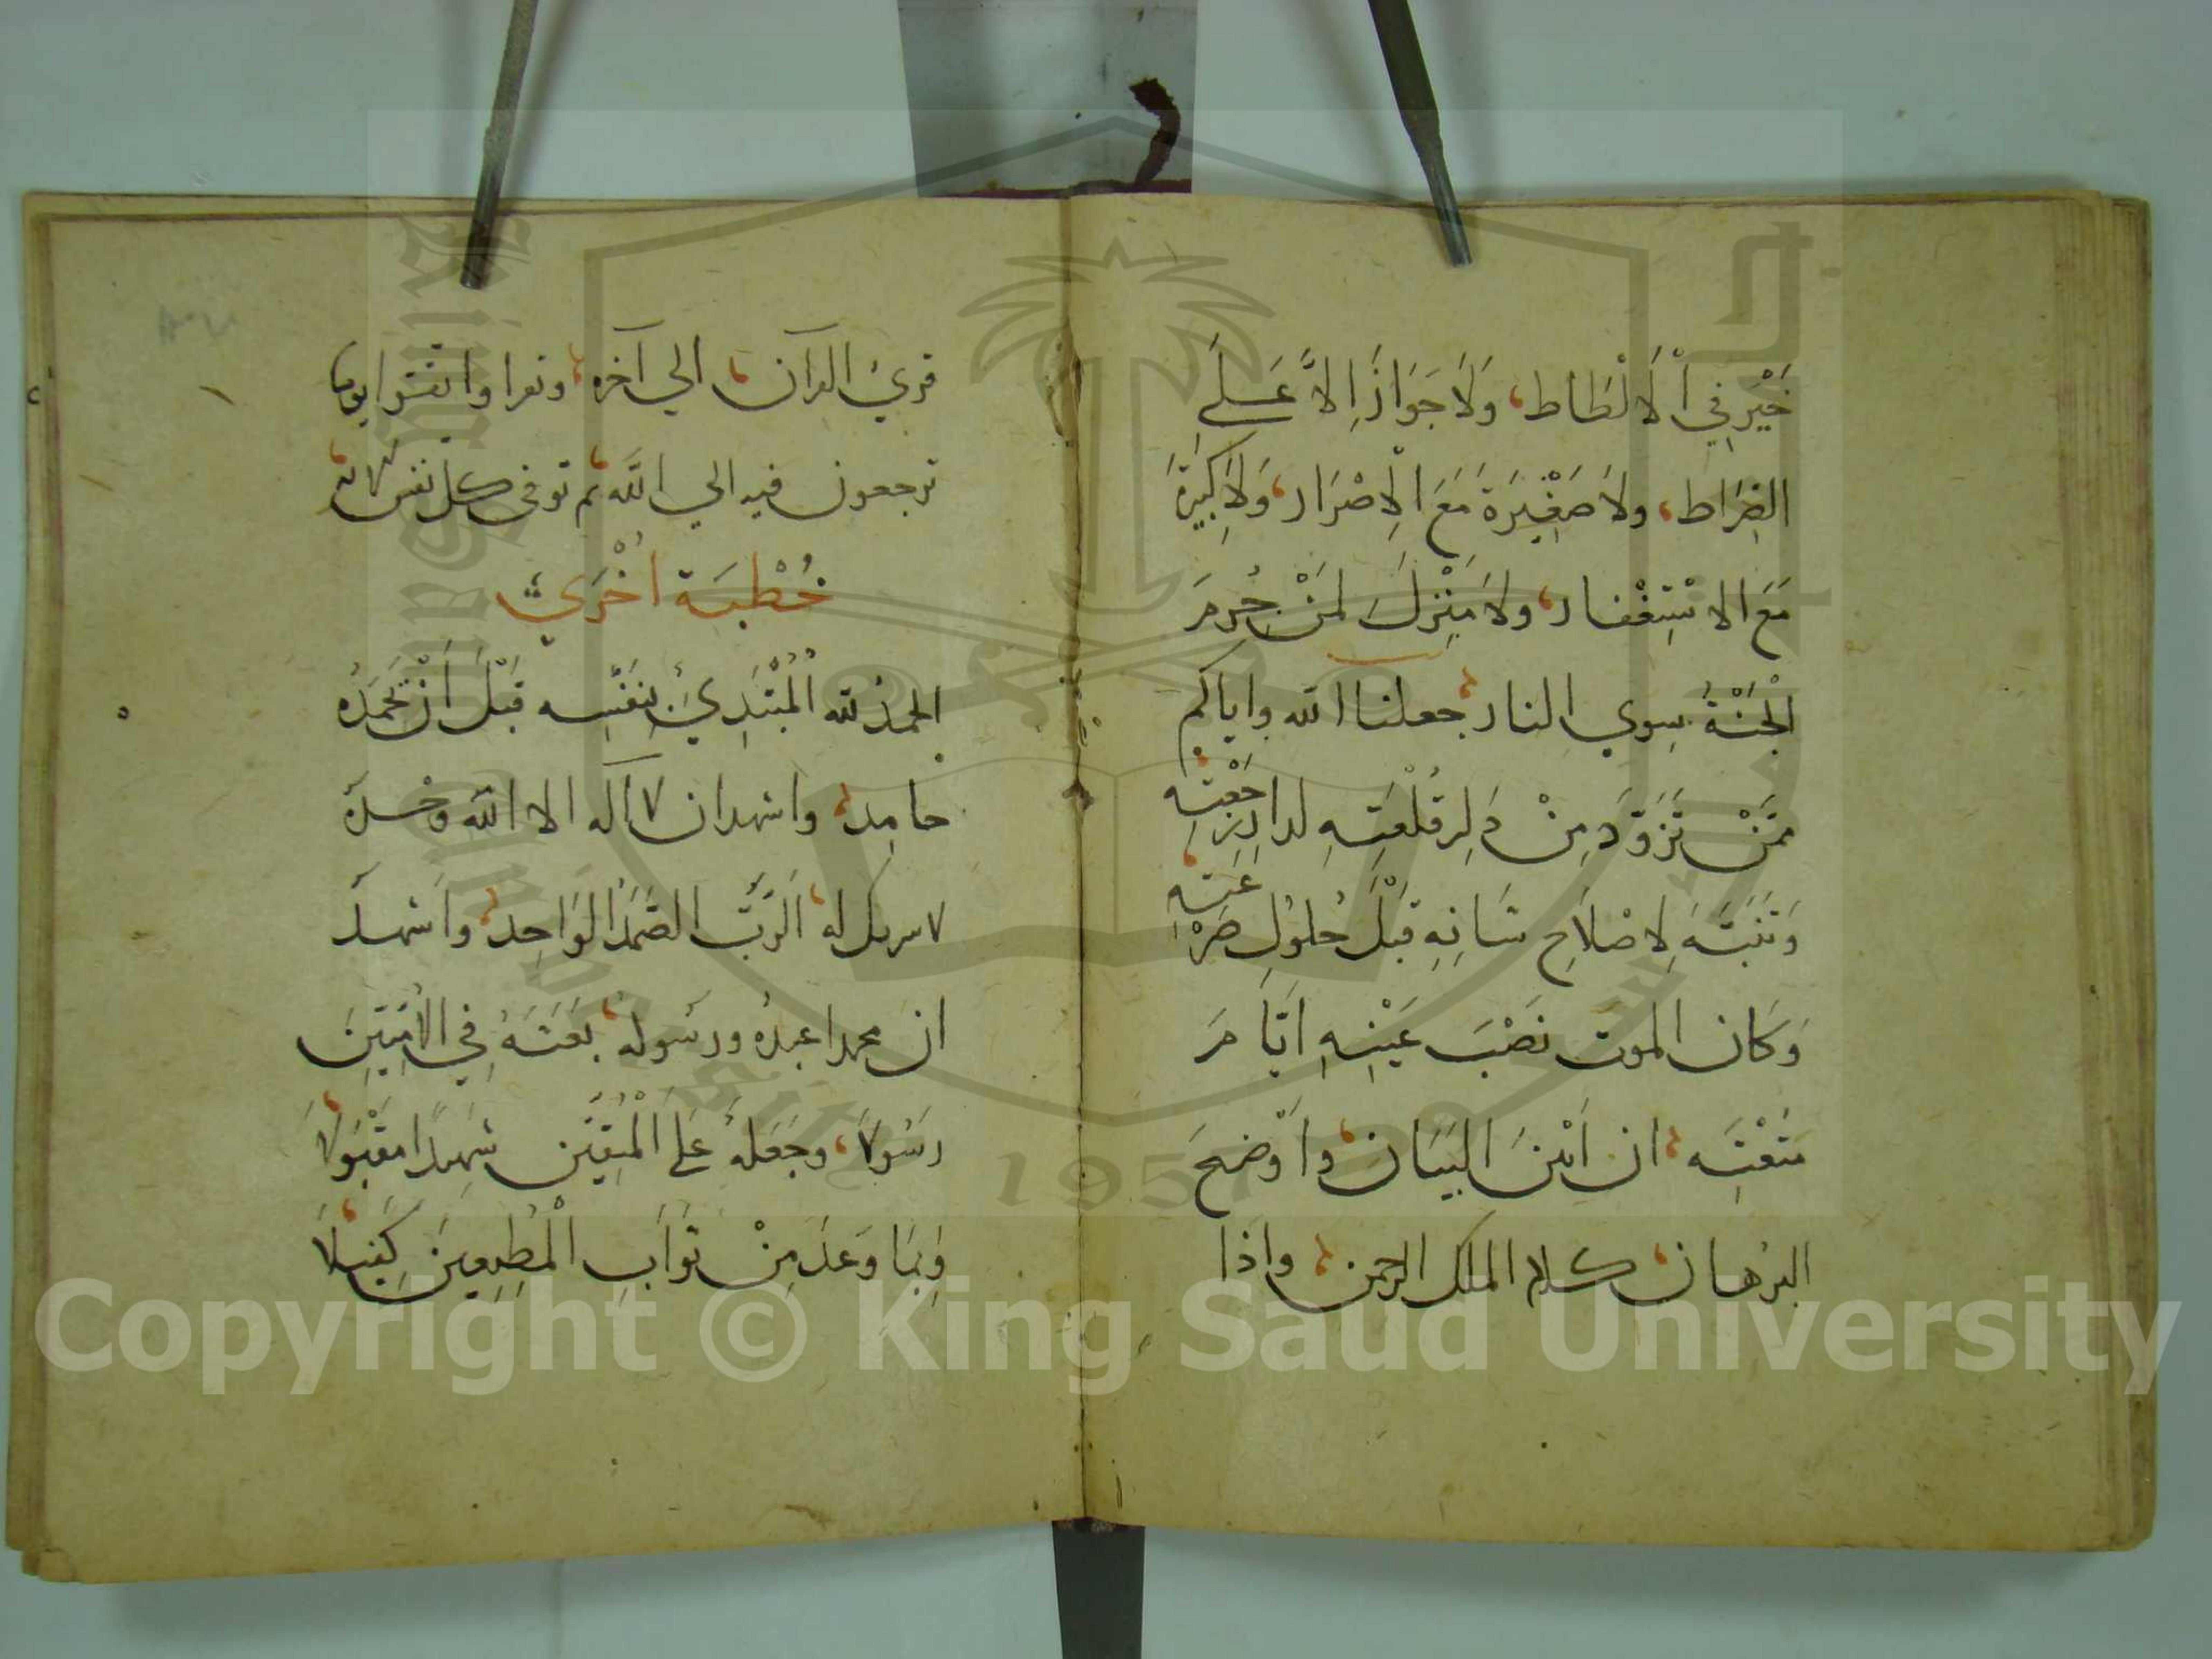 خَيْرَ فِي الْالْطَاط، وَلَا جَوَازَ اِلاَّ عَلَى
الصِّرَاط، ولاَ صَغِيرَةَ مَعَ الْاِصْرَار، وَلاَ كَبِيرَةَ
مَعَ الاسْتِغْفار، ولاَ مَنْزِلَ لمَنْ حُرِمَ
الْجَنَّةَ سِوي النار، جعلنا الله واياكم
مِمَّنْ تَزَوَّدَ مِنْ دَارِ قُلْعَتِهِ لدار رَجْعَتِهِ
وَتَنَبَّهَ لِاصْلاَحِ شَانِهِ قَبْلَ حُلولِ صَرْعَتِهِ
وَكَان الموت نَصْبَ عَيْنِهِ ايَّامَ
مَتْعَتِه، ان اَبْيَنَ البَيَان، واَوْضَحَ
البرْهان، كلام الملك الرحمن، واذَا
قرئ القرآن، الي آخره، ونقرا واتقوا يوما
ترجعون فيه الي الله، ثم توفى كل نفس الآية
خُطْبَة اُخْرَي
الحمدُ لله الْمُبْتَدِئِ بِنَفْسِه قَبْلَ اَنْ يَحْمَدَهُ
حامِد، واشهد ان لا آله الا الله وحْدهُ
لا شريك له، الرَّبُّ الصَّمَدُ الوَاحِد، واَشهدُ
انَ محمدا عبدهُ ورسُولهُ، بَعَثَهُ فِي الاُمِّيِّينَ
رَسُولا، وجَعَلهُ عَلَي الْمُتَّقِينَ شَهِيدًا مَقْبُولاَ،
وَبِمَا وَعَدَ مِنْ ثَوَابِ الْمُطِيعِينَ كَفِيلاَ،
1957
Copyright © King Saud University